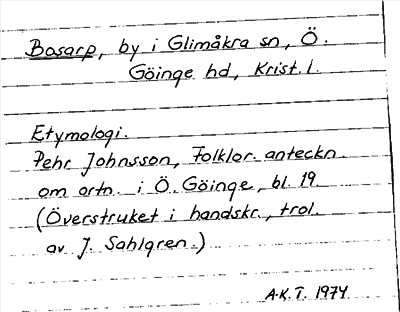 Bosarp, by i Glimåkra sn, Ö.
Göinge hd, Krist. l.
Etymologi.
Pehr Johnsson, Folklor. anteckn.
om ortn. i Ö. Göinge, bl. 19
(Överstruket i handskr., trol.
av J. Sahlgren.)
A.K.T. 1974